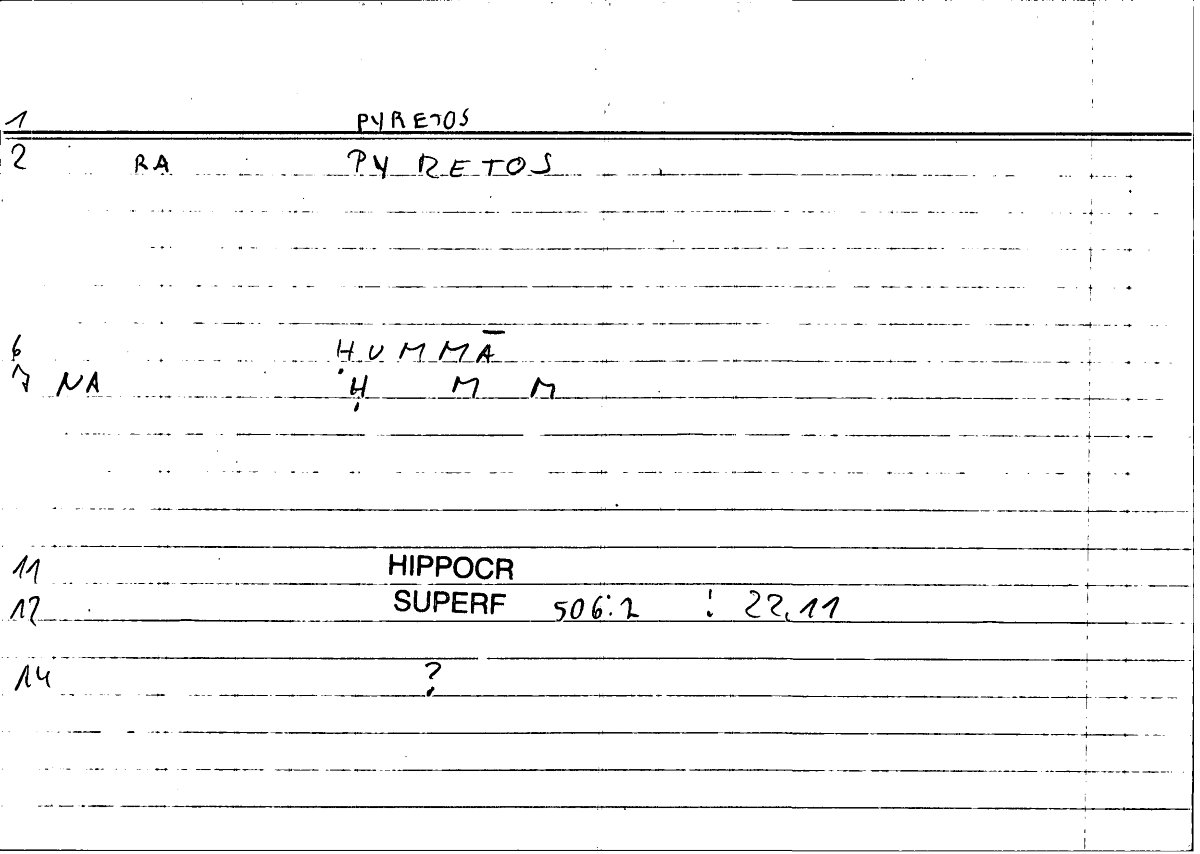 1 PYRETOS
2 RA PYRETOS
6 ḤUMMĀ
7 NA Ḥ M M
11 HIPPOCR
12 SUPERF 506:2 : 22,11
14 ?